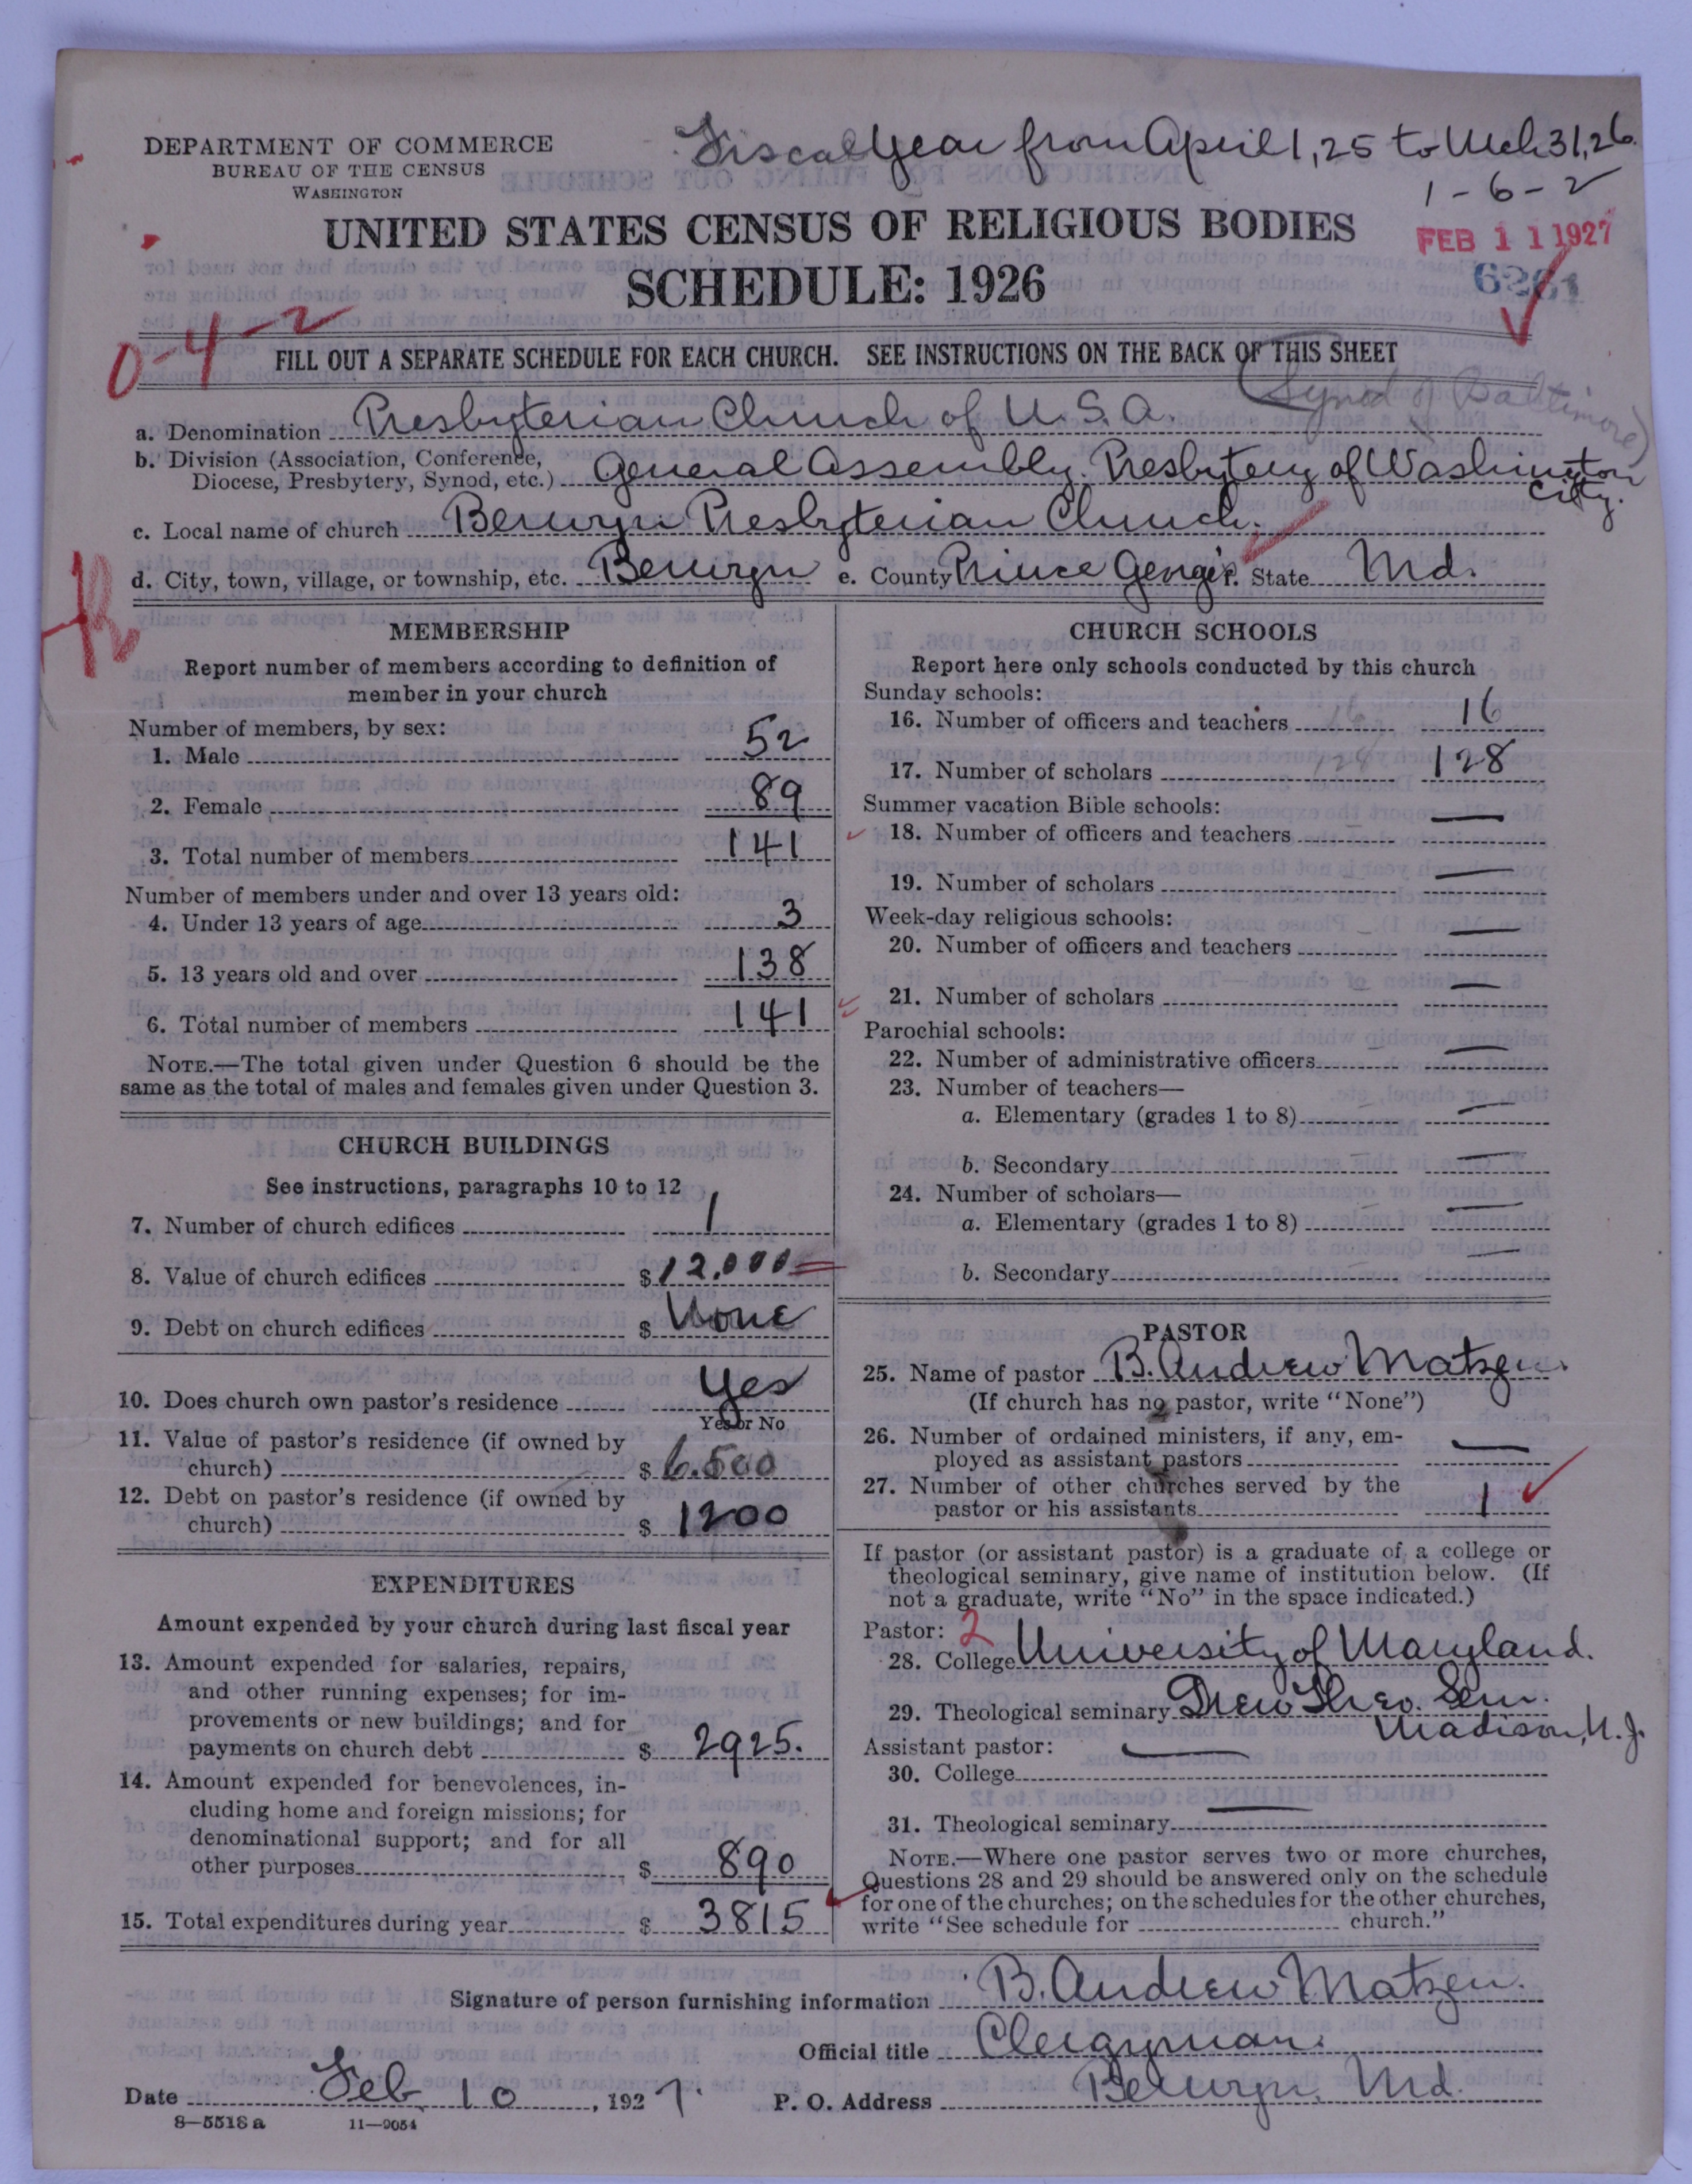 DEPARTMENT OF COMMERCE
BUREAU OF THE CENSUS
WASHINGTON
Fiscal Year from April 1, 25 to Mch 31, 26.
1-6-2
UNITED STATES CENSUS OF RELIGIOUS BODIES
FEB 11 1927
SCHEDULE: 1926
6261
0-4-2
FILL OUT A SEPARATE SCHEDULE FOR EACH CHURCH. SEE INSTRUCTIONS ON THE BACK OF THIS SHEET
(Synod of Baltimore)
a. Denomination Presbyterian Church of U.S.A.
b. Division (Association, Conference, Diocese, Presbytery, Synod, etc.) General Assembly. Presbytery of Washington City.
c. Local name of church Berwyn Presbyterian Church.
d. City, town, village, or township, etc. Berwyn e. County Prince George f. State Md.
MEMBERSHIP
Report number of members according to definition of
member in your church
Number of members, by sex:
1. Male 52
2. Female 89
3. Total number of members 141
Number of members under and over 13 years old:
4. Under 13 years of age 3
5. 13 years old and over 138
6. Total number of members 141
NOTE.—The total given under Question 6 should be the
same as the total of males and females given under Question 3.
CHURCH BUILDINGS
See instructions, paragraphs 10 to 12
7. Number of church edifices 1
8. Value of church edifices $ 12.000
9. Debt on church edifices $ None
10. Does church own pastor's residence Yes
Yes or No
11. Value of pastor's residence (if owned by
church) $ 6.500
12. Debt on pastor's residence (if owned by
church) $ 1200
EXPENDITURES
Amount expended by your church during last fiscal year
13. Amount expended for salaries, repairs,
and other running expenses; for im-
provements or new buildings; and for
payments on church debt $ 2925.
14. Amount expended for benevolences, in-
cluding home and foreign missions; for
denominational support; and for all
other purposes $ 890
15. Total expenditures during year $ 3815
CHURCH SCHOOLS
Report here only schools conducted by this church
Sunday schools:
16. Number of officers and teachers 16 16
17. Number of scholars 128 128
Summer vacation Bible schools:
18. Number of officers and teachers —
19. Number of scholars —
Week-day religious schools:
20. Number of officers and teachers —
21. Number of scholars —
Parochial schools:
22. Number of administrative officers —
23. Number of teachers—
a. Elementary (grades 1 to 8) —
b. Secondary —
24. Number of scholars—
a. Elementary (grades 1 to 8) —
b. Secondary —
PASTOR
25. Name of pastor B. Andrew Matzen.
(If church has no pastor, write "None")
26. Number of ordained ministers, if any, em-
ployed as assistant pastors —
27. Number of other churches served by the
pastor or his assistants 1
If pastor (or assistant pastor) is a graduate of a college or
theological seminary, give name of institution below. (If
not a graduate, write "No" in the space indicated.)
Pastor: 2
28. College University of Maryland.
29. Theological seminary Drew Theo. Sem.
Madison, N.J.
Assistant pastor: —
30. College
31. Theological seminary —
NOTE.—Where one pastor serves two or more churches,
Questions 28 and 29 should be answered only on the schedule
for one of the churches; on the schedules for the other churches,
write "See schedule for church."
Signature of person furnishing information B. Andrew Matzen.
Official title Clergyman.
Date Feb. 10, 1927. P. O. Address Berwyn, Md.
8—5518a 11—9054